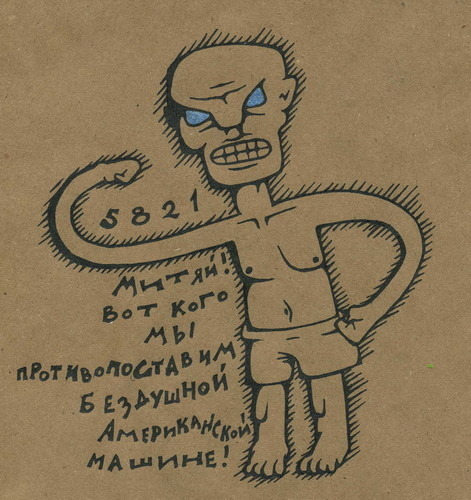 5821
Митяй!
Вот кого
мы
противопоставим
бездушной
Американской
машине!